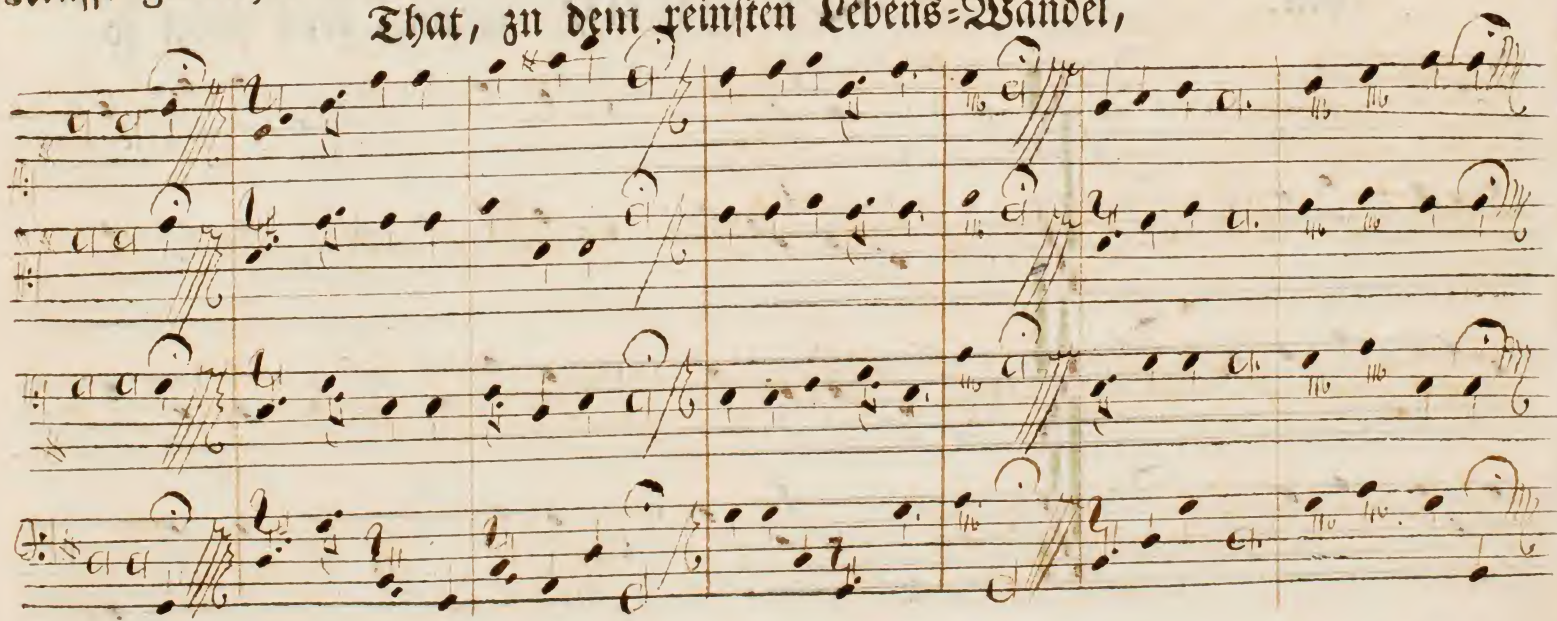 That, zu dem reinsten Lebens=Wandel,